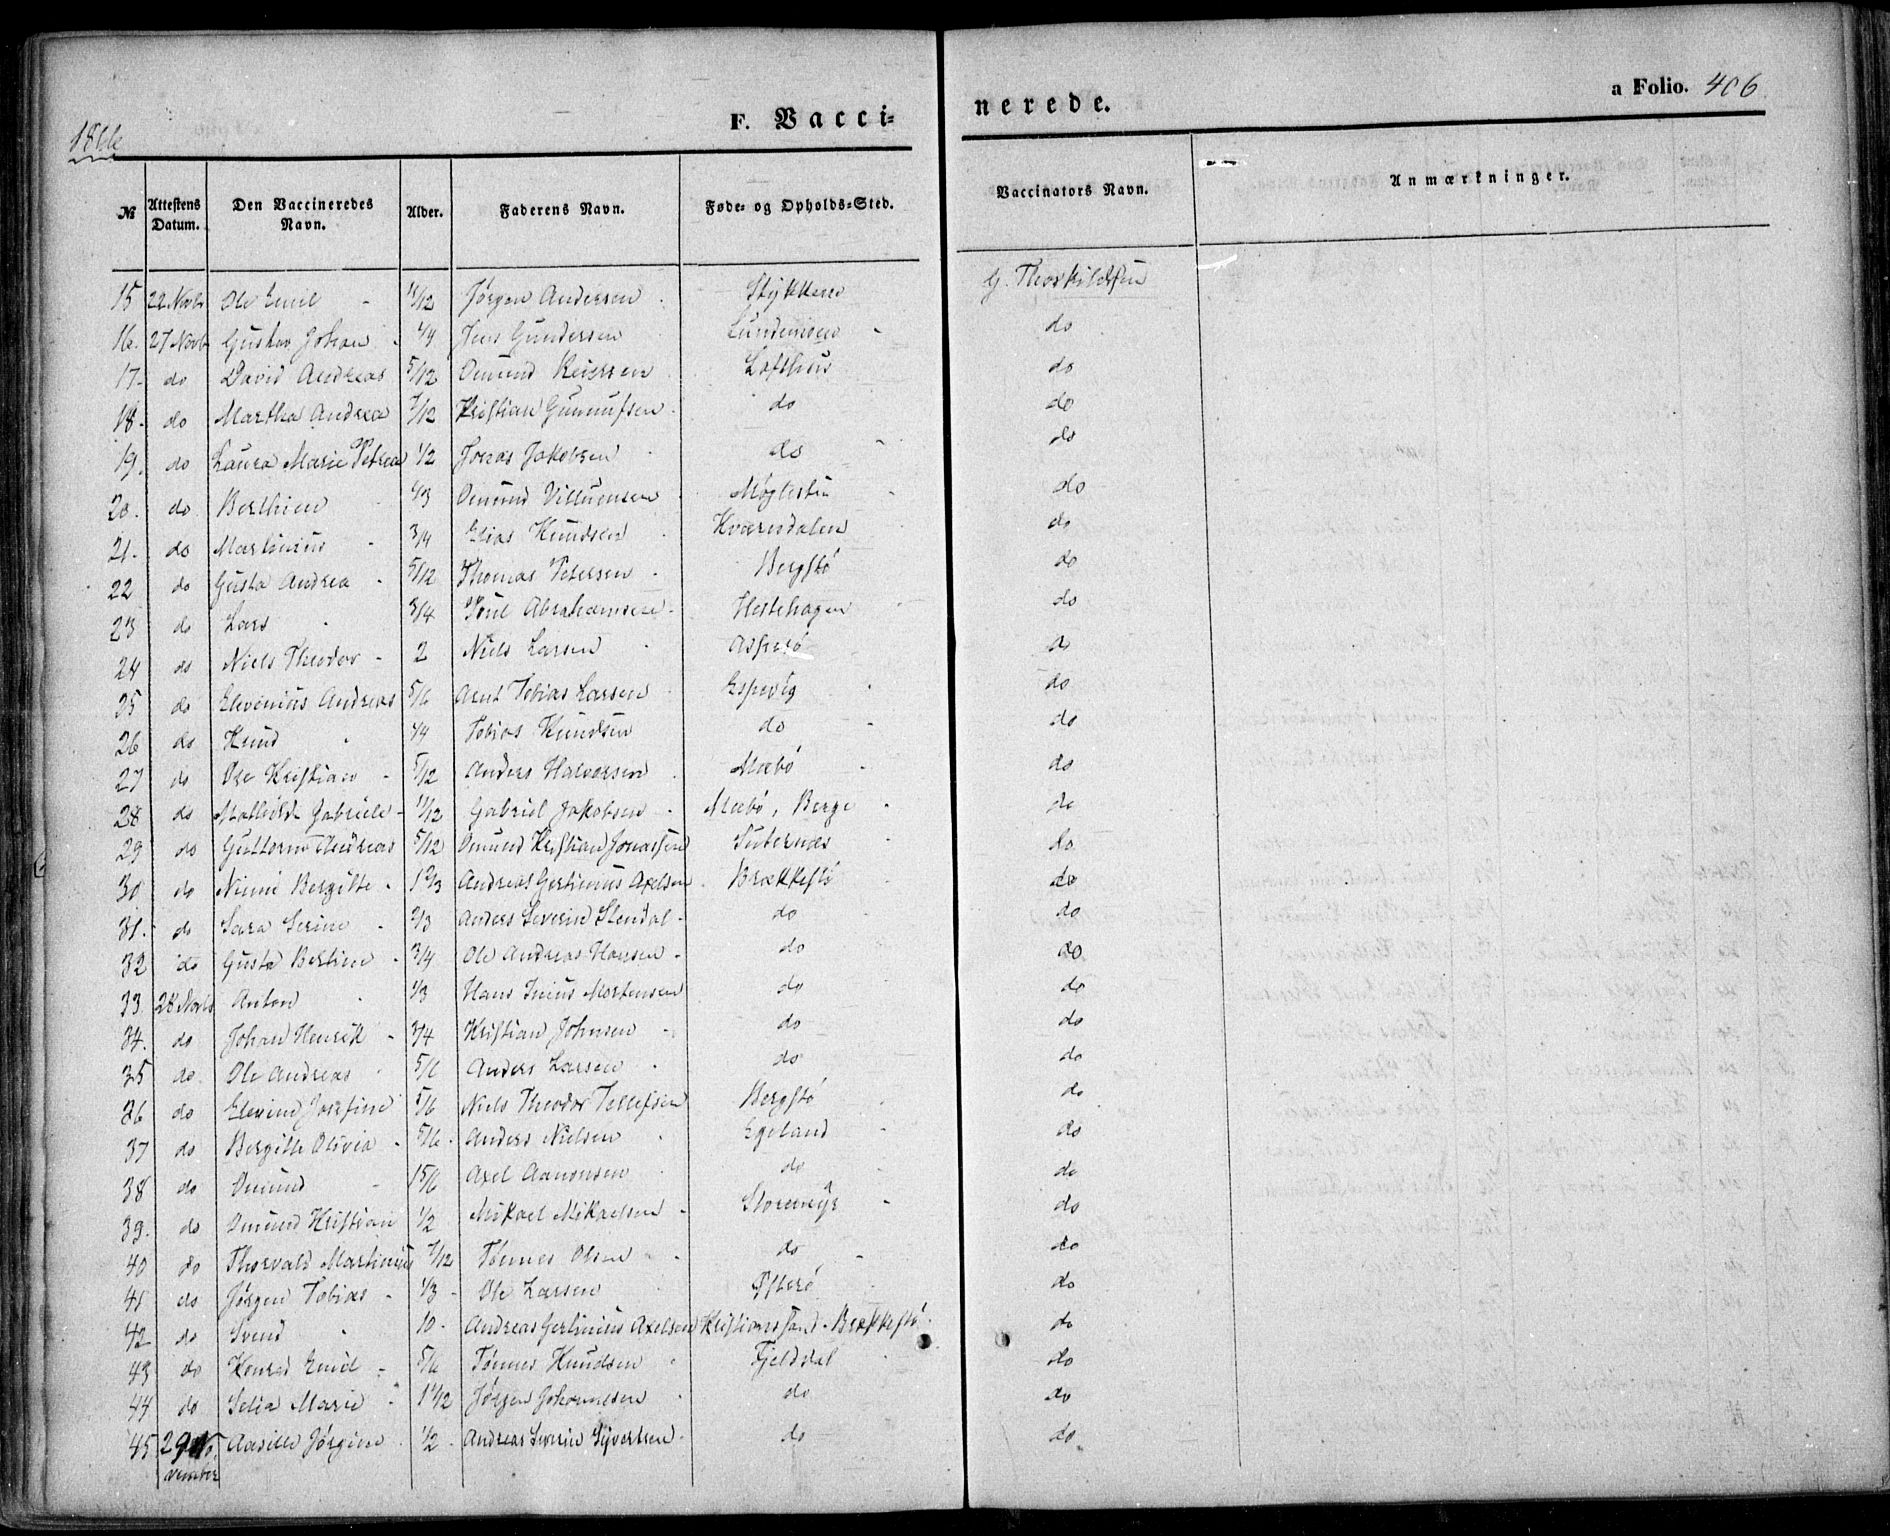 1866
F. Vacci=
nerede.
a Folio. 406
№ Attestens Datum. Den Vaccineredes Navn. Alder. Faderens Navn. Føde= og Opholds=Sted. Vaccinators Navn. Anmærkninger.
15 22 Novb Ole Emil 11/12 Jørgen Andersen G. Thorkildsen
16. 27 Novb Gustav Johan 1/4 Jens Gundersen do
17. do David Andreas 5/12 Omund Reiersen Lofthus do
18. do Martha Andrea 7/12 Kristian Gunnufsen do do
19. do Laura Marie Petrea 1/2 Jonas Jakobsen do do
20. do Berthine 1/3 Omund do
21. do Martinius 3/4 Elias Knudsen Kværndalen do
22 do Gusta Andrea 5/12 Thomas Petersen Bergstø do
23 do Lars 3/4 Poul Abrahamsen Hestehagen do
24 do Niels Theodor 2 Niels Larsen do
25 do Elevinius Andreas 5/6 Arnt Tobias Larsen Espevig do
26 do Knud 1/4 Tobias Knudsen do do
27 do Ole Kristian 5/12 Anders Halvorsen Mæbø do
28 do Mathilde Gabriele 11/12 Gabriel Jakobsen Mæbø, Berge do
29 do Guttorm Andreas 5/12 Omund Kristian Jonassen do
30 do Nimi Bergitte 1 2/3 Andreas Gertinius Axelsen Brækkestø do
31. do Sara Serine 2/3 Anders Severin Stendal do do
32 do Gusta Bertine 3/4 Ole Andreas Hansen do do
33 28 Novb Anton 1/3 Hans Mortensen do do
34. do Johan Henrik 3/4 Kristian Johnsen do do
35 do Ole Andreas 5/6 Anders Larsen do do
36 do Elevine Josefine 5/6 Niels Theodor Tellefsen Bergstø do
37 do Bergitte Olivia 5/6 Anders Nielsen Egeland do
38 do Omund 1 5/6 Axel Aanonsen do do
39. do Omund Kristian 1/2 Mikael Mikaelsen Storemyr do
40 do Thorvald Martinius 7/12 Tønnes Olsen do do
41 do Jørgen Tobias 1/3 Ole Larsen Østerø do
42 do Svend 10 Andreas Gertinius Axelsen Kristianssand. Brækkestø do
43 do Konrad Emil 5/6 Tønnes Knudsen Fjelddal do
44 do Selia Marie Jørgen Johannesen do do
45 29 November Aasille Jørgine 1/2 Andreas Severin Syvertsen do do